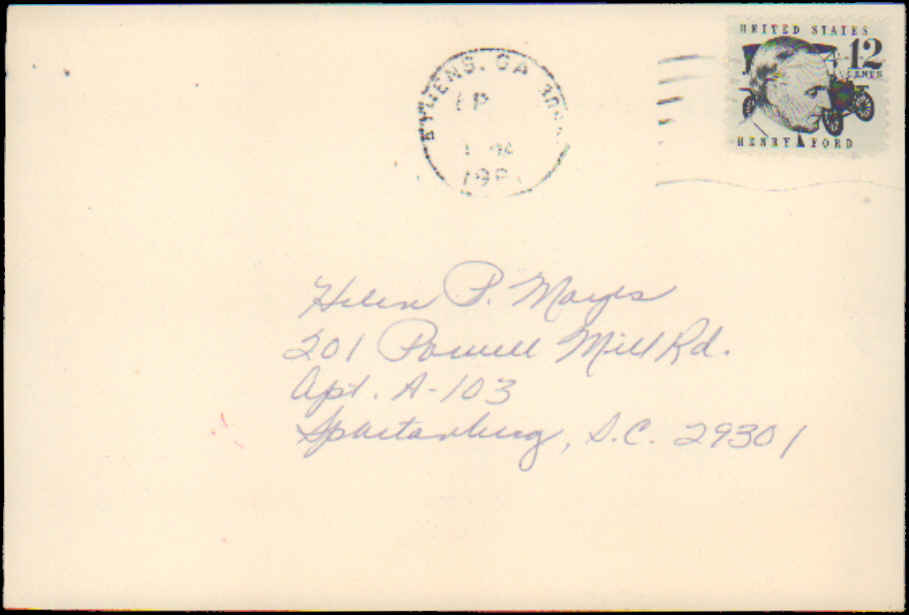 UNITED STATES
12
CENTS
HENRY FORD
ATHENS, GA
Helen P. Mayes
201 Powell Mill Rd.
Apt. A-103
Spartanburg, S.C. 29301